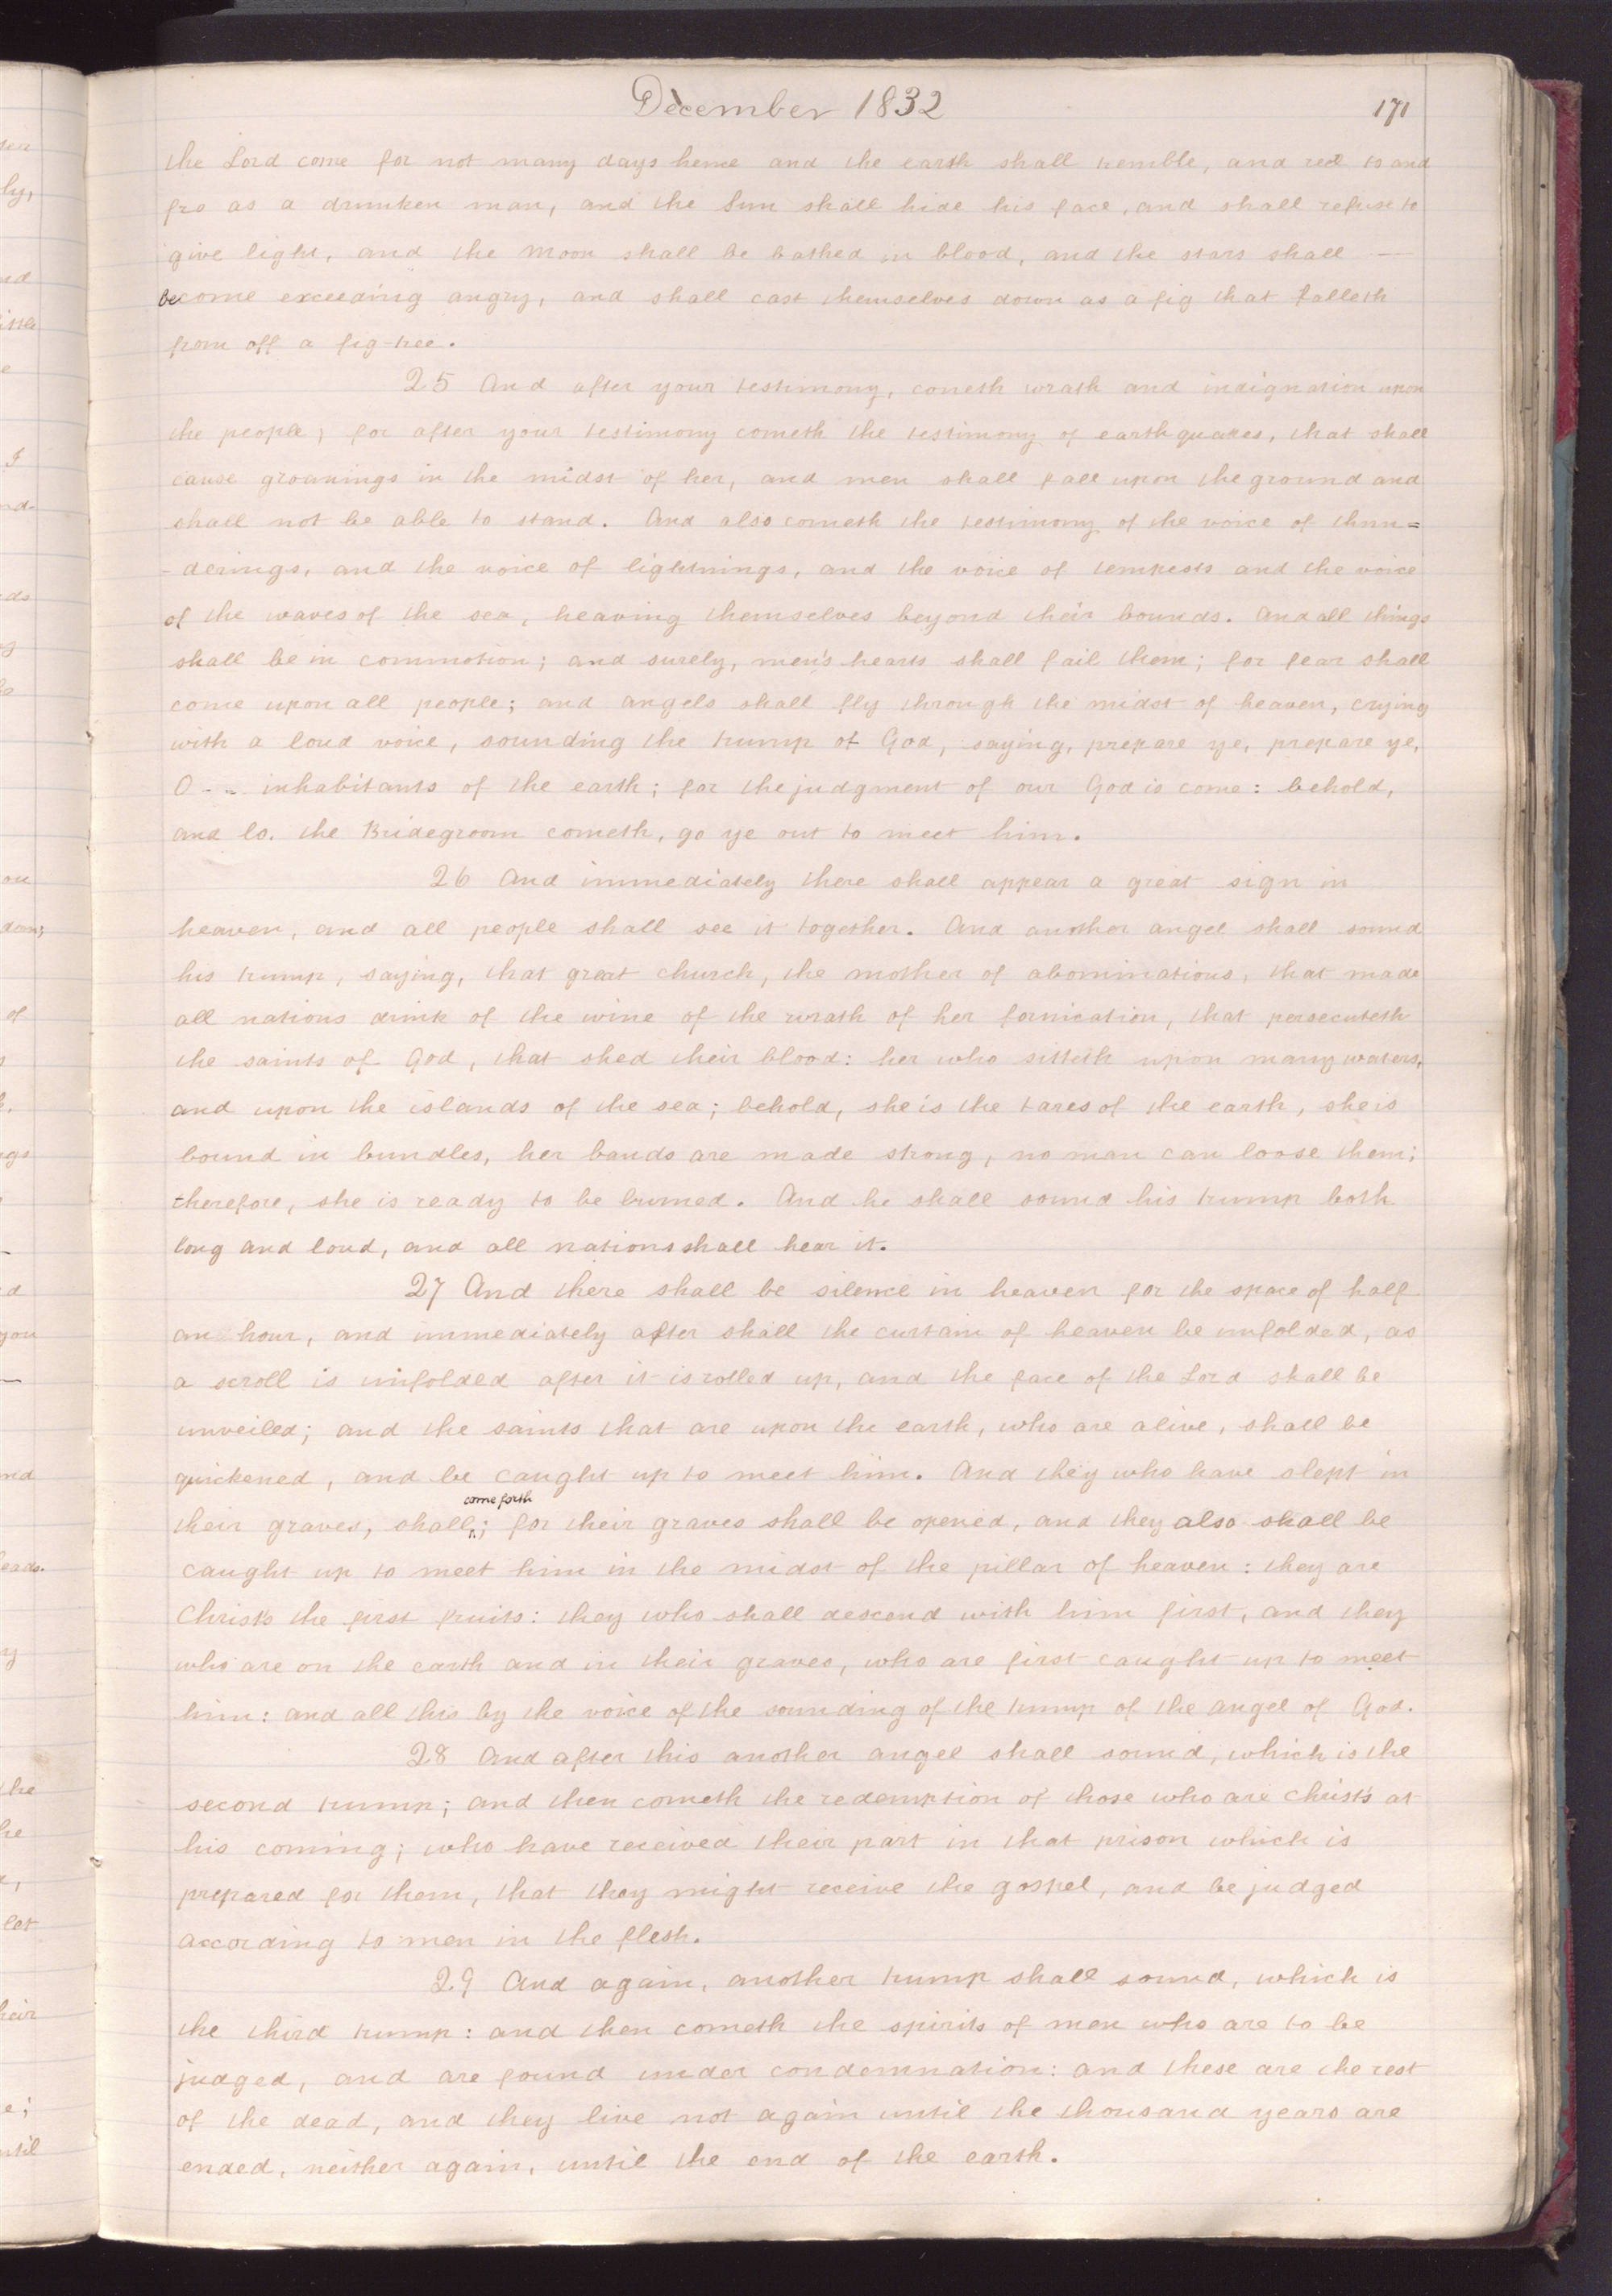 December 1832
171
the Lord come for not many days hence and the earth shall tremble, and reel to and
fro as a drunken man, and the Sun shall hide his face, and shall refuse to
give light, and the Moon shall be bathed in blood, and the stars shall —
become exceeding angry, and shall cast themselves down as a fig that falleth
from off a fig-tree.
25 And after your testimony, cometh wrath and indignation upon
the people; for after your testimony cometh the testimony of earthquakes, that shall
cause groanings in the midst of her, and men shall fall upon the ground and
shall not be able to stand. And also cometh the testimony of the voice of thun=
-derings, and the voice of lightnings, and the voice of tempests and the voice
of the waves of the sea, heaving themselves beyond their bounds. And all things
shall be in commotion; and surely, men's hearts shall fail them; for fear shall
come upon all people; and angels shall fly through the midst of heaven, crying
with a loud voice, sounding the trump of God, saying, prepare ye, prepare ye,
O - - inhabitants of the earth; for the judgment of our God is come: behold,
and lo. the Bridegroom cometh, go ye out to meet him.
26 And immediately there shall appear a great sign in
heaven, and all people shall see it together. And another angel shall sound
his trump, saying, that great church, the mother of abominations, that made
all nations drink of the wine of the wrath of her fornication, that persecuteth
the saints of God, that shed their blood: her who sitteth upon many waters,
and upon the islands of the sea; behold, she is the tares of the earth, she is
bound in bundles, her bands are made strong, no man can loose them;
therefore, she is ready to be burned. And he shall sound his trump both
long and loud, and all nations shall hear it.
27 And there shall be silence in heaven for the space of half
an hour, and immediately after shall the curtain of heaven be unfolded, as
a scroll is unfolded after it is rolled up, and the face of the Lord shall be
unveiled; and the saints that are upon the earth, who are alive, shall be
quickened, and be caught up to meet him. And they who have slept in
come forth
their graves, shall^; for their graves shall be opened, and they also shall be
caught up to meet him in the midst of the pillar of heaven: they are
Christ's the first fruits: they who shall descend with him first, and they
who are on the earth and in their graves, who are first caught up to meet
him: and all this by the voice of the sounding of the trump of the angel of God.
28 And after this another angel shall sound, which is the
second trump; and then cometh the redemption of those who are Christ's at
his coming; who have received their part in that prison which is
prepared for them, that they might receive the gospel, and be judged
according to men in the flesh.
29 And again, another trump shall sound, which is
the third trump: and then cometh the spirits of men who are to be
judged, and are found under condemnation: and these are the rest
of the dead, and they live not again until the thousand years are
ended, neither again, until the end of the earth.